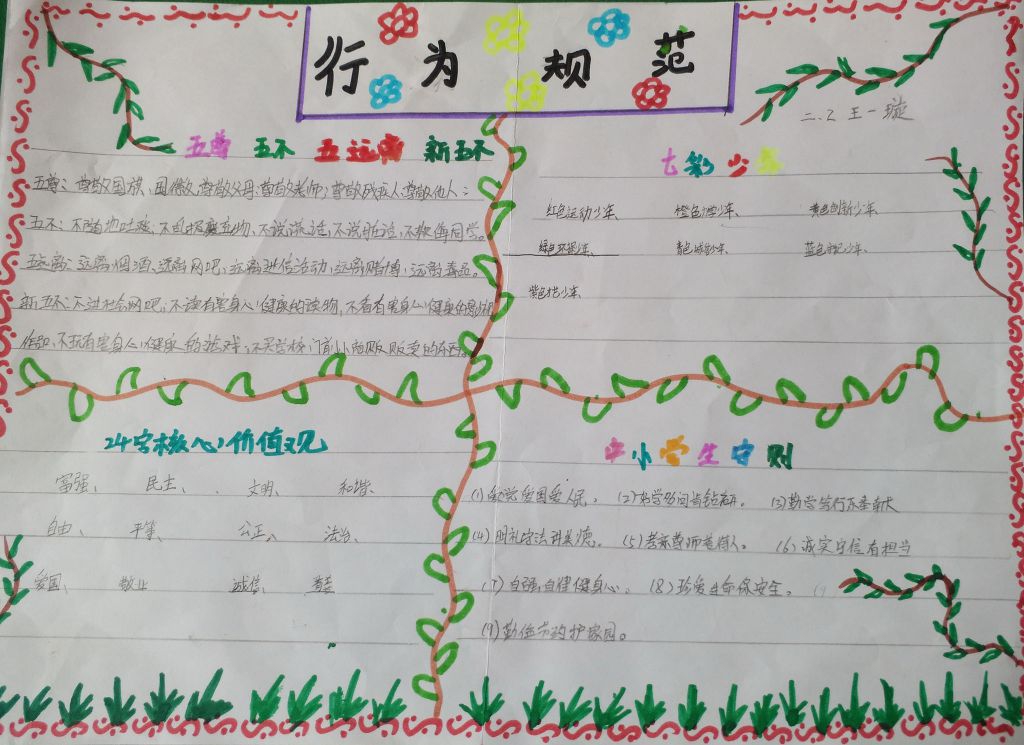 行为规范
二.2 王一璇
五尊 五不 五远离 新五不
五尊：尊敬国旗、国徽，尊敬父母，尊敬老师，尊敬残疾人，尊敬他人；
五不：不随地吐痰、不乱扔废弃物，不说谎话，不说脏话，不欺侮同学。
五远离：远离烟酒、远离网吧、远离迷信活动，远离赌博，远离毒品。
新五不：不进社会网吧，不读有害身心健康的读物，不看有害身心健康的影视
作品，不玩有害身心健康的游戏，不买学校门前小商贩贩卖的东西。
七彩少年
红色运动少年、 橙色 少年、 黄色创新少年、
绿色环保少年、 青色 少年、 蓝色 少年、
紫色 少年、
24字核心价值观
富强、 民主、 文明、 和谐、
自由、 平等、 公正、 法治、
爱国、 敬业 诚信、 友善
中小学生守则
(1)爱党爱国爱人民。 (2)好学多问肯钻研。 (3)勤劳笃行乐奉献
(4)明礼守法讲美德。 (5)孝亲尊师善待人。 (6)诚实守信有担当
(7)自强自律健身心。 (8)珍爱生命保安全。
(9)勤俭节约护家园。